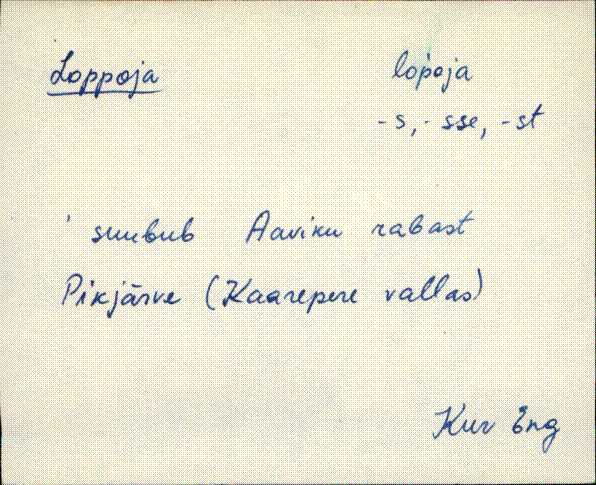 Loppoja lop̀oja
-s, -sse, -st
' suubub Aaviku rabast
Pikjärve (Kaarepere vallas)
Kur Eng